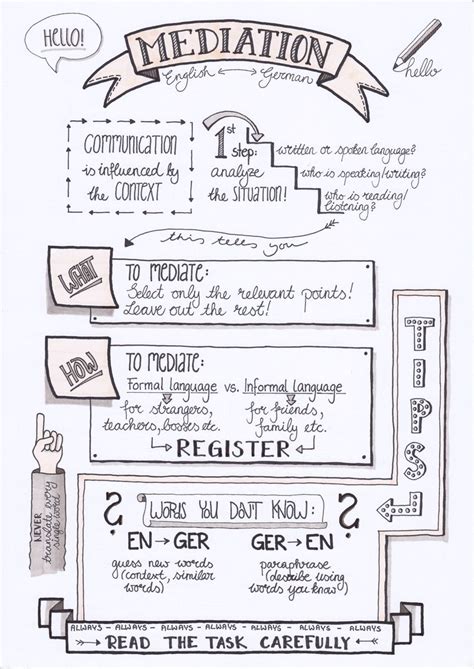 HELLO!
MEDIATION
English ↔ German
hello
COMMUNICATION
is influenced by
the CONTEXT
1st
step:
analyze
the SITUATION!
written or spoken language?
who is speaking/writing?
who is reading/
listening?
this tells you
WHAT
TO MEDIATE:
Select only the relevant points!
Leave out the rest!
HOW
TO MEDIATE:
Formal language vs. Informal language
for strangers,
teachers, bosses etc.
for friends,
family etc.
REGISTER
TIPS
NEVER
translate every
single word
? WORDS YOU DON'T KNOW: ?
EN → GER
guess new words
(context, similar
words)
GER → EN
paraphrase
(describe using
words you know)
ALWAYS - ALWAYS - ALWAYS - ALWAYS - ALWAYS - ALWAYS - ALWAYS
READ THE TASK CAREFULLY